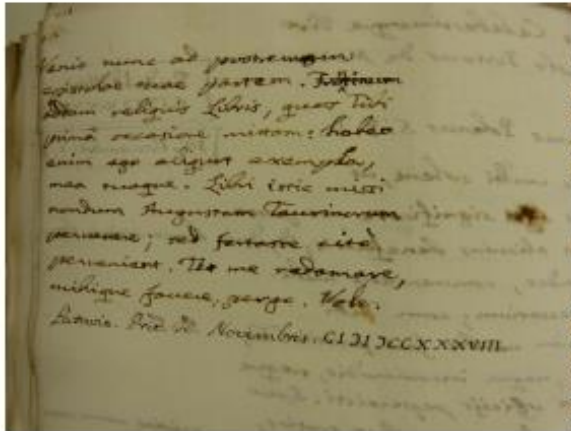 Venio nunc ad postremam
epistolae tuae partem.
addam reliquis Libris, quos Tibi
prima occasione mittam: habeo
enim ego aliquot exempla,
mea neque. Libri istic missi
nondum Augustam Taurinorum
pervenere; sed fortasse cito
pervenient. Tu me redamare,
mihique favere, perge. Vale.
Patavio. Prid. Novembris. CIƆIƆCCXXXVIII.